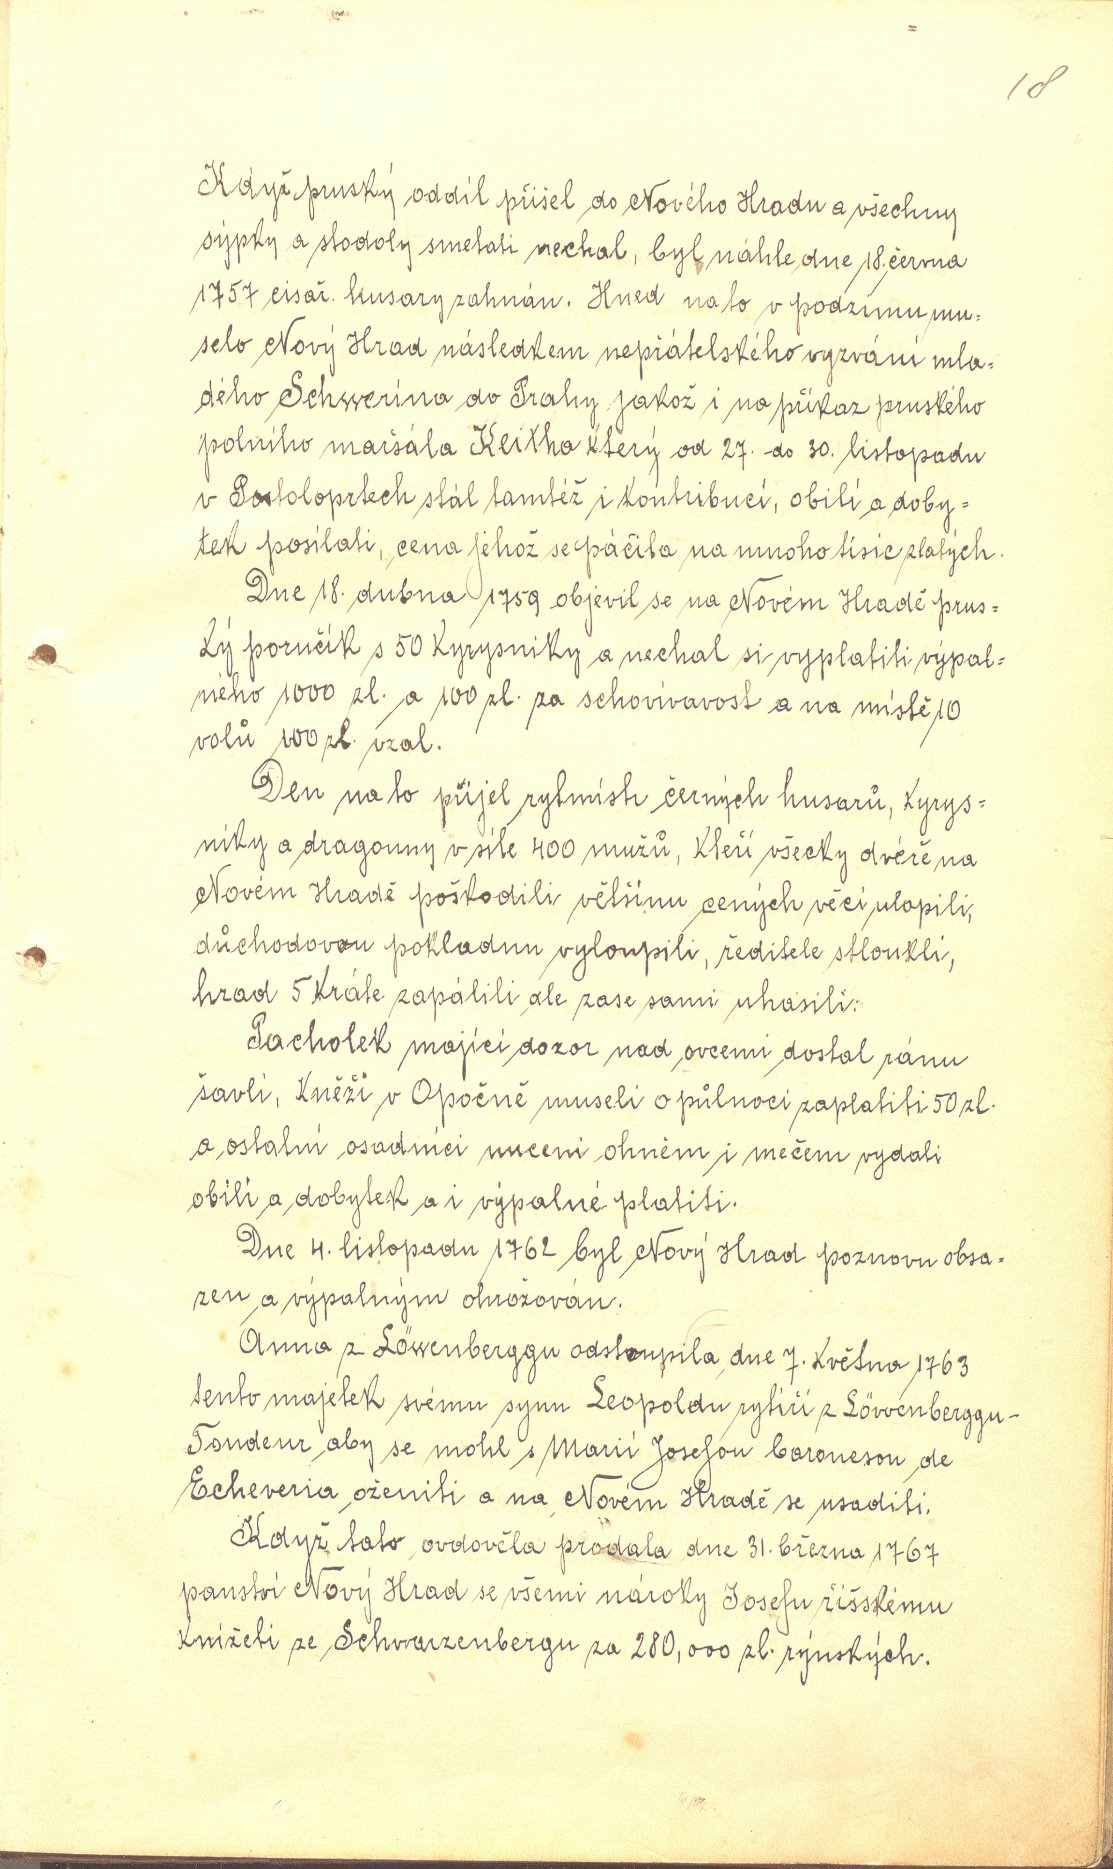 18
Když pruský oddíl přišel do Nového Hradu a všechny
sýpky a stodoly smetati nechal, byl náhle dne 18. června
1757 cisař. husary zahnán. Hned na to v podzimu mu=
selo Nový Hrad následkem nepřátelského vyzvání mla=
dého Schwerina do Prahy jakož i na příkaz pruského
polního maršála Keitha který od 27. do 30. listopadu
v Postoloprtech stál tamtéž i kontribucí, obilí a doby=
tek posílati, cena jehož se páčila na mnoho tisíc zlatých.
Dne 18. dubna 1759 objevil se na Novém Hradě prus=
ký poručík s 50 kyrysniky a nechal si vyplatiti výpal=
ného 1000 zl. a 100 zl. za schovívavost a na místě 10
volů 100 zl. vzal.
Den na to přijel rytmistr černých husarů, kyrys=
níky a dragouny v síle 400 mužů, kteří všecky dvéře na
Novém Hradě poškodili většinu cených věcí ulopili,
důchodovou pokladnu vyloupili, ředitele stloukli,
hrad 5 kráte zapálili ale zase sami uhasili.
Pacholek mající dozor nad ovcemi dostal ránu
šavlí, kněží v Opočně museli o půlnoci zaplatiti 50 zl.
a ostatní osadníci nuceni ohněm i mečem vydati
obilí a dobytek a i výpalné platiti.
Dne 4. listopadu 1762 byl Nový Hrad poznovu obsa=
zen a výpalným ohrožován.
Anna z Löwenberggu odstoupila dne 7. května 1763
tento majetek svému synu Leopoldu rytíři z Löwenberggu-
Tondeur aby se mohl s Marií Josefou baronesou de
Echeveria oženiti a na Novém Hradě se usaditi.
Když tato ovdověla prodala dne 31. března 1767
panství Nový Hrad se všemi nároky Josefu říšskému
knížeti ze Schwarzenbergu za 280,000 zl. rýnských.